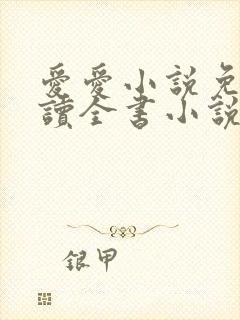 愛愛小説免
讀全書小說
银甲